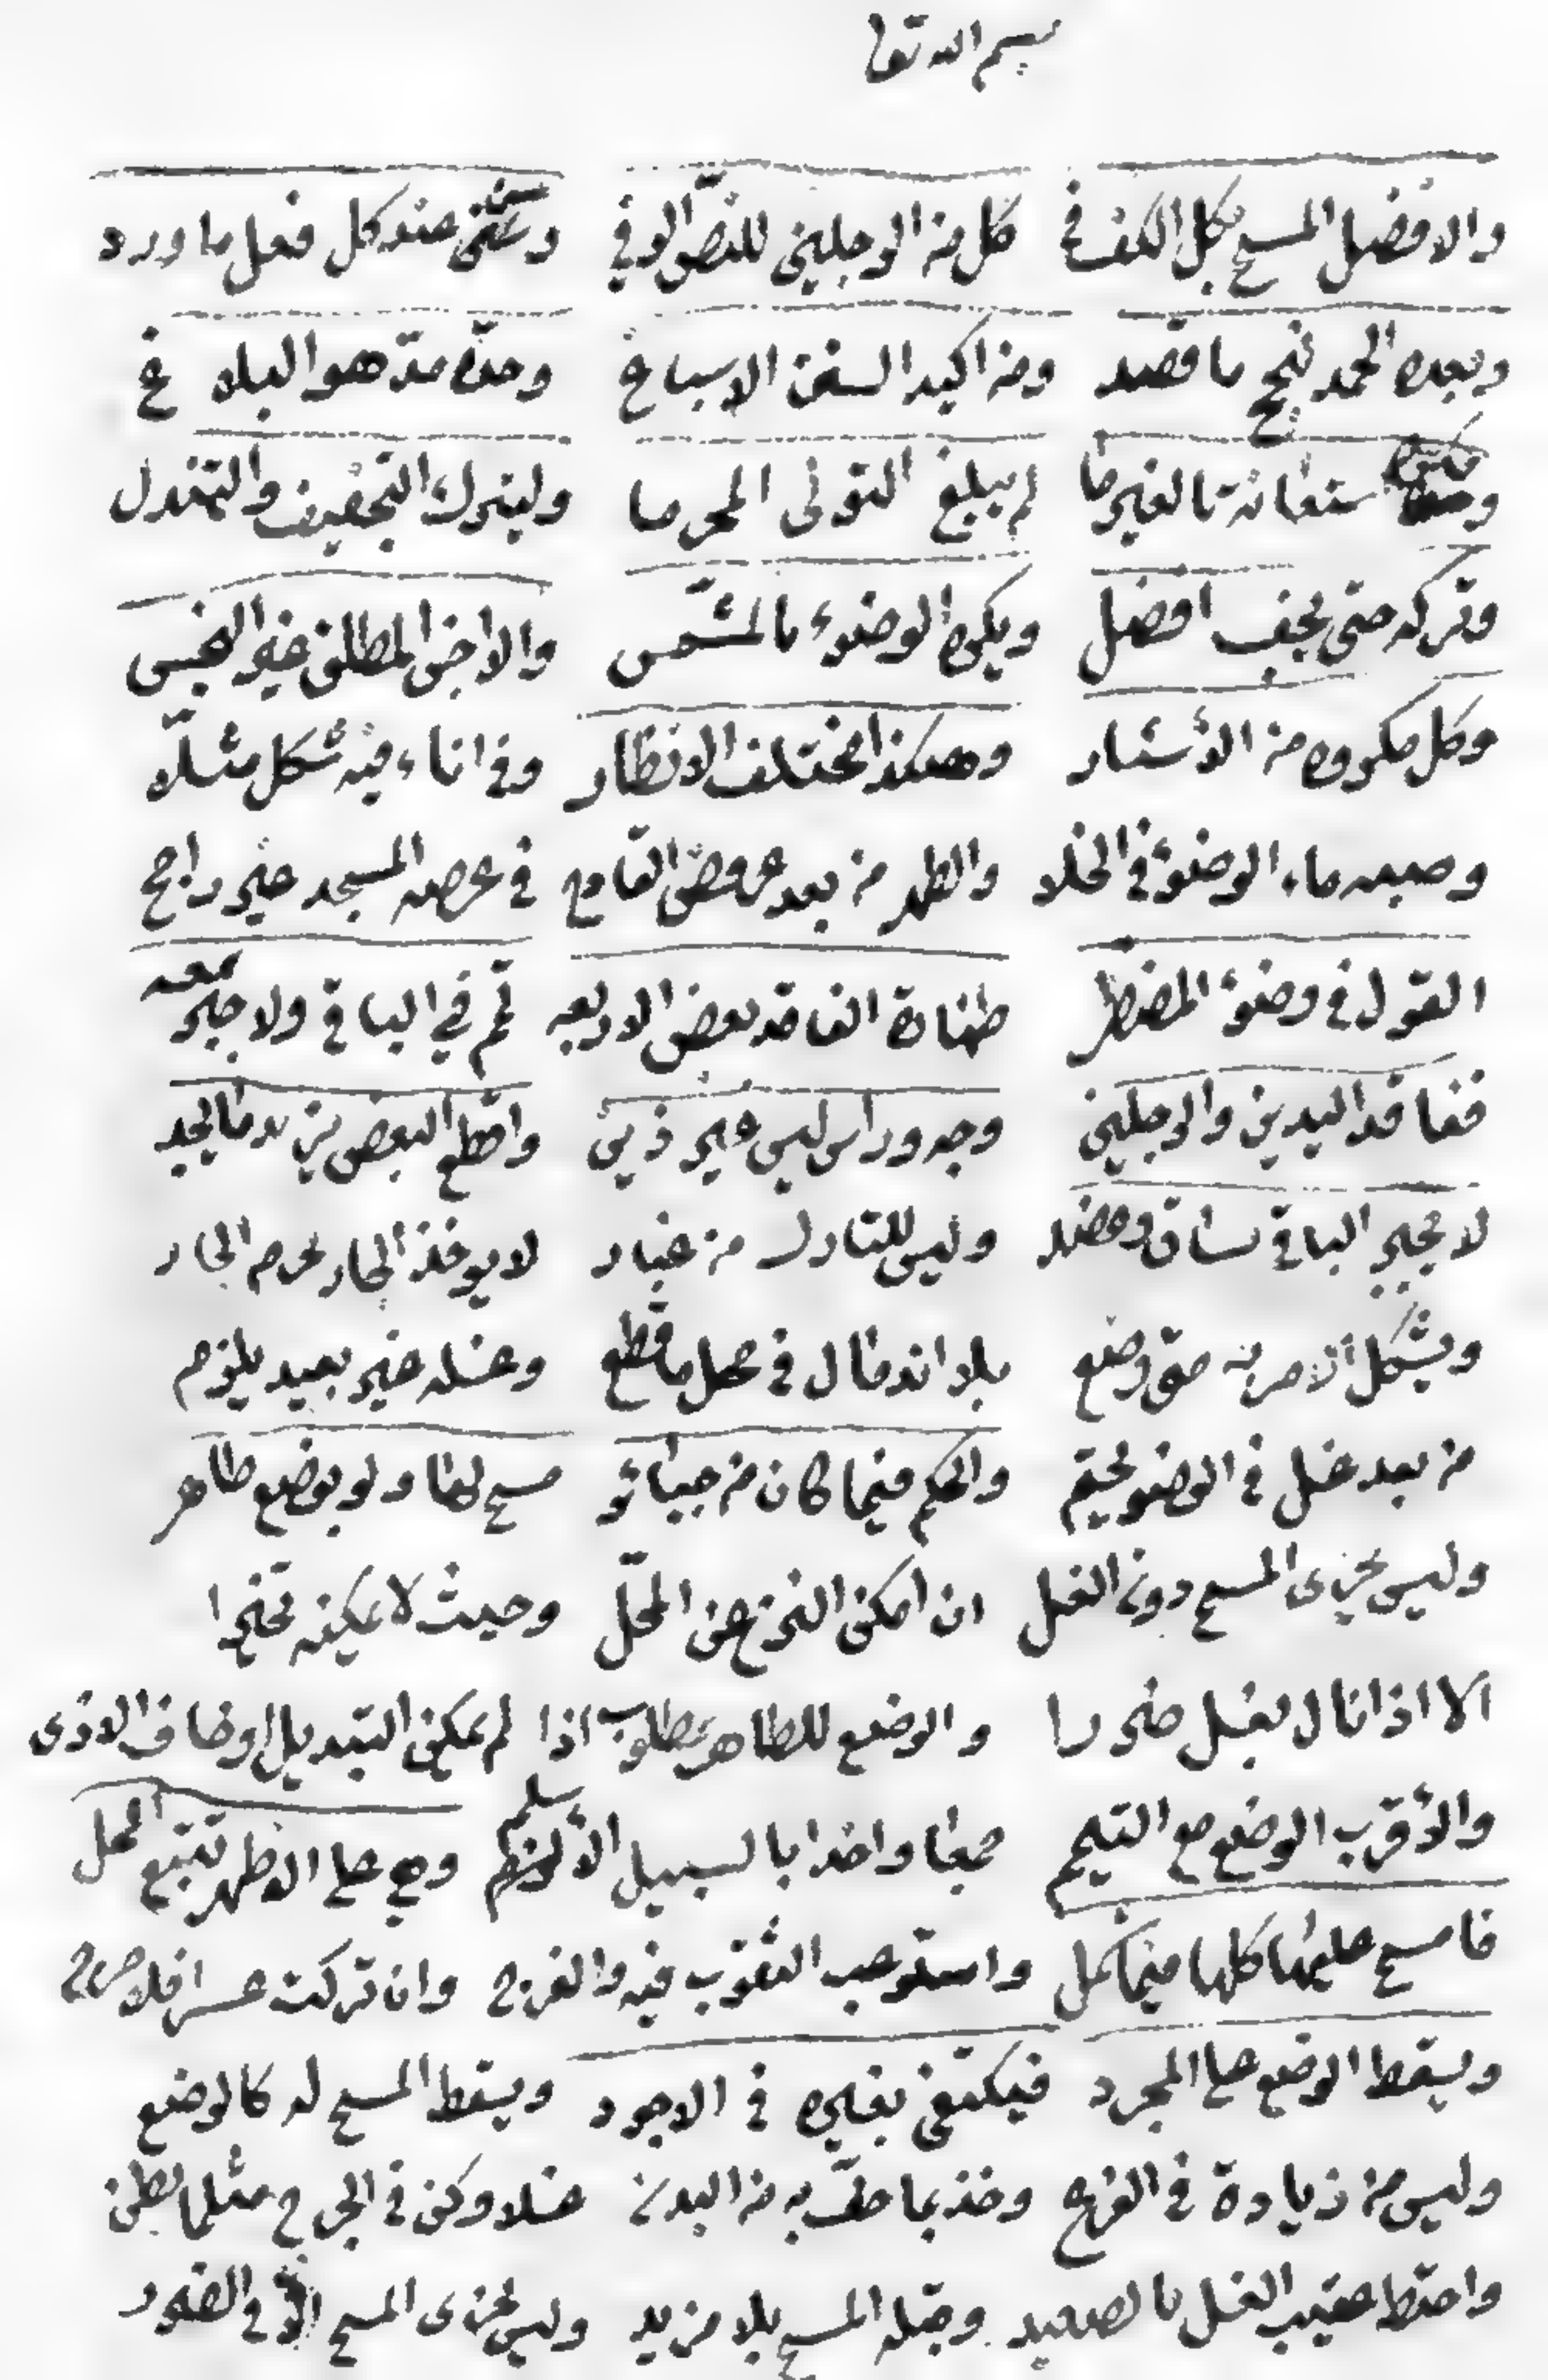 بسم الله تعا
والافضل المسح بكل الكف في كل من الرجلين للنص الوفي وسم عند كل فعل ما ورد
وبعده الحمد نجح ما قصد ومن اكيد السنن الاسباغ وحده مد هو البلاغ
ومكره استعانة بالغير ما لم يبلغ التولى المحرما وليترك التجفيف والتمندل
وتركه حتى يجف افضل ويكره الوضوء بالمشمس والاجن المطلق غير النجس
وكل مكروه من الأسئار وهكذا مختلف الانظار وفي اناء فيه شكل مثلا
وصبه ماء الوضوء في الخلا والطهر من بعد عروض القامع في عرصه المسجد غير راجح
القول في وضوء المضطر طهارة الفاقد بعض الاربعه تم في الباقي ولا جبر معه
ففاقد اليدين والرجلين وجه وراس ليس غير ذين واقطع البعض يزيد ما يجد
لا يجبر الباقي بساق وعضد وليس للتارك من غبار لا يوخذ الجار بجرم الجار
ويشكل الامر به متى وضع بلا اندمال في محل ما قطع وغسله غير بعيد يلزم
من بعد غسل في الوضو يحتم والحكم فيما كان من جبائر مسح لها ولو بوضع طاهر
وليس يجزى المسح دون الغسل ان امكن النزع عن المحل وحيث لا يمكنه تخيرا
الا اذا نال بغسل ضررا والوضع للطاهر مطلوب اذا لم يمكن التبديل او خاف الاذى
والأقرب الوضع مع التيمم جمعا واخذا بالسبيل الأسلم وهي على الاظهر تتبع المحل
فامسح عليها كلها فيما كمل واستوعب الثقوب فيه والفرج وان تركت عسرا فلا حرج
ويسقط الوضع على المجرد فيكتفى بغيره في الاجود ويسقط المسح له كالوضع
وليس من زيادة في الفرع وخذ بما حف به من البدن غسلا وكن في الجرح مثلما بطن
واحتط عقيب الغسل بالصعيد وقبله المسح بلا مزيد وليس يجزى المسح الا في الضرر